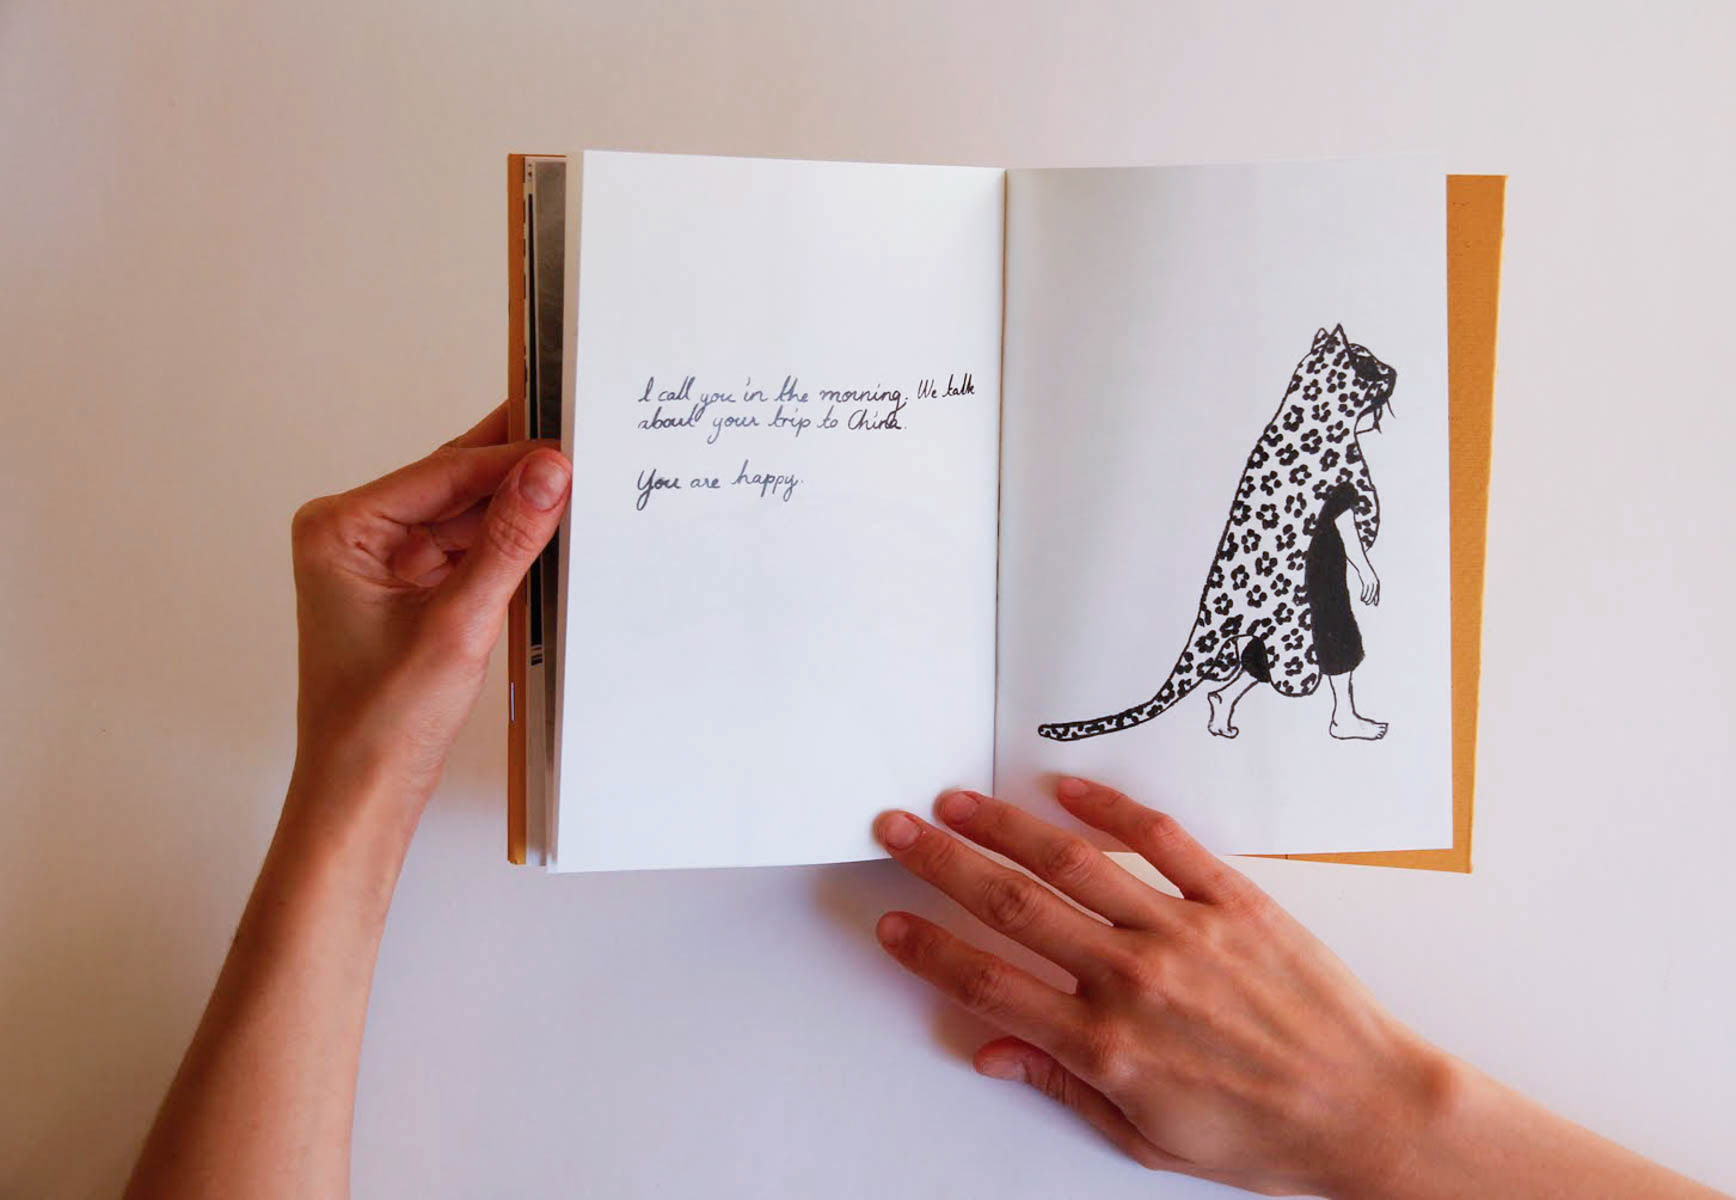 I call you in the morning. We talk
about your trip to China.
You are happy.